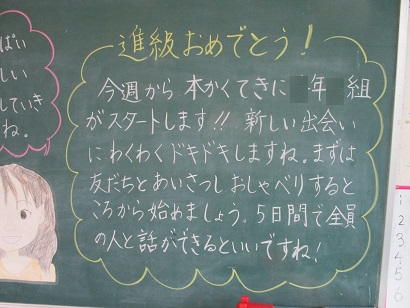 進級おめでとう!
今週から本かくてきに 年 組
がスタートします!! 新しい出会い
にわくわくドキドキしますね。まずは
友だちとあいさつし おしゃべりすると
ころから始めましょう。5日間で全員
の人と話ができるといいですね!
ぱい
しい
していき
ね。
1
2
3
4
5
6